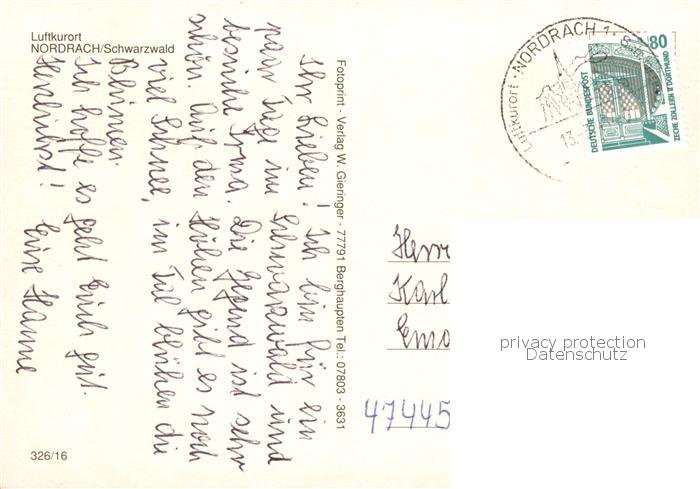 Luftkurort
NORDRACH/Schwarzwald
Ihr Lieben! Ich bin für ein
paar Tage im Schwarzwald und
besuche Irma. Die Gegend ist sehr
schön. Auf den Höhen gibt es noch
viel Schnee, im Tal blühen die
Blumen.
Ich hoffe es geht Euch gut.
Herzlichst! Eure Hanne
326/16
Fotoprint - Verlag W. Gieringer - 77791 Berghaupten Tel.: 07803 - 3631
Luftkurort · NORDRACH 1
13.
80
DEUTSCHE BUNDESPOST
ZECHE ZOLLERN II DORTMUND
Herr
Karl
47445
privacy protection
Datenschutz